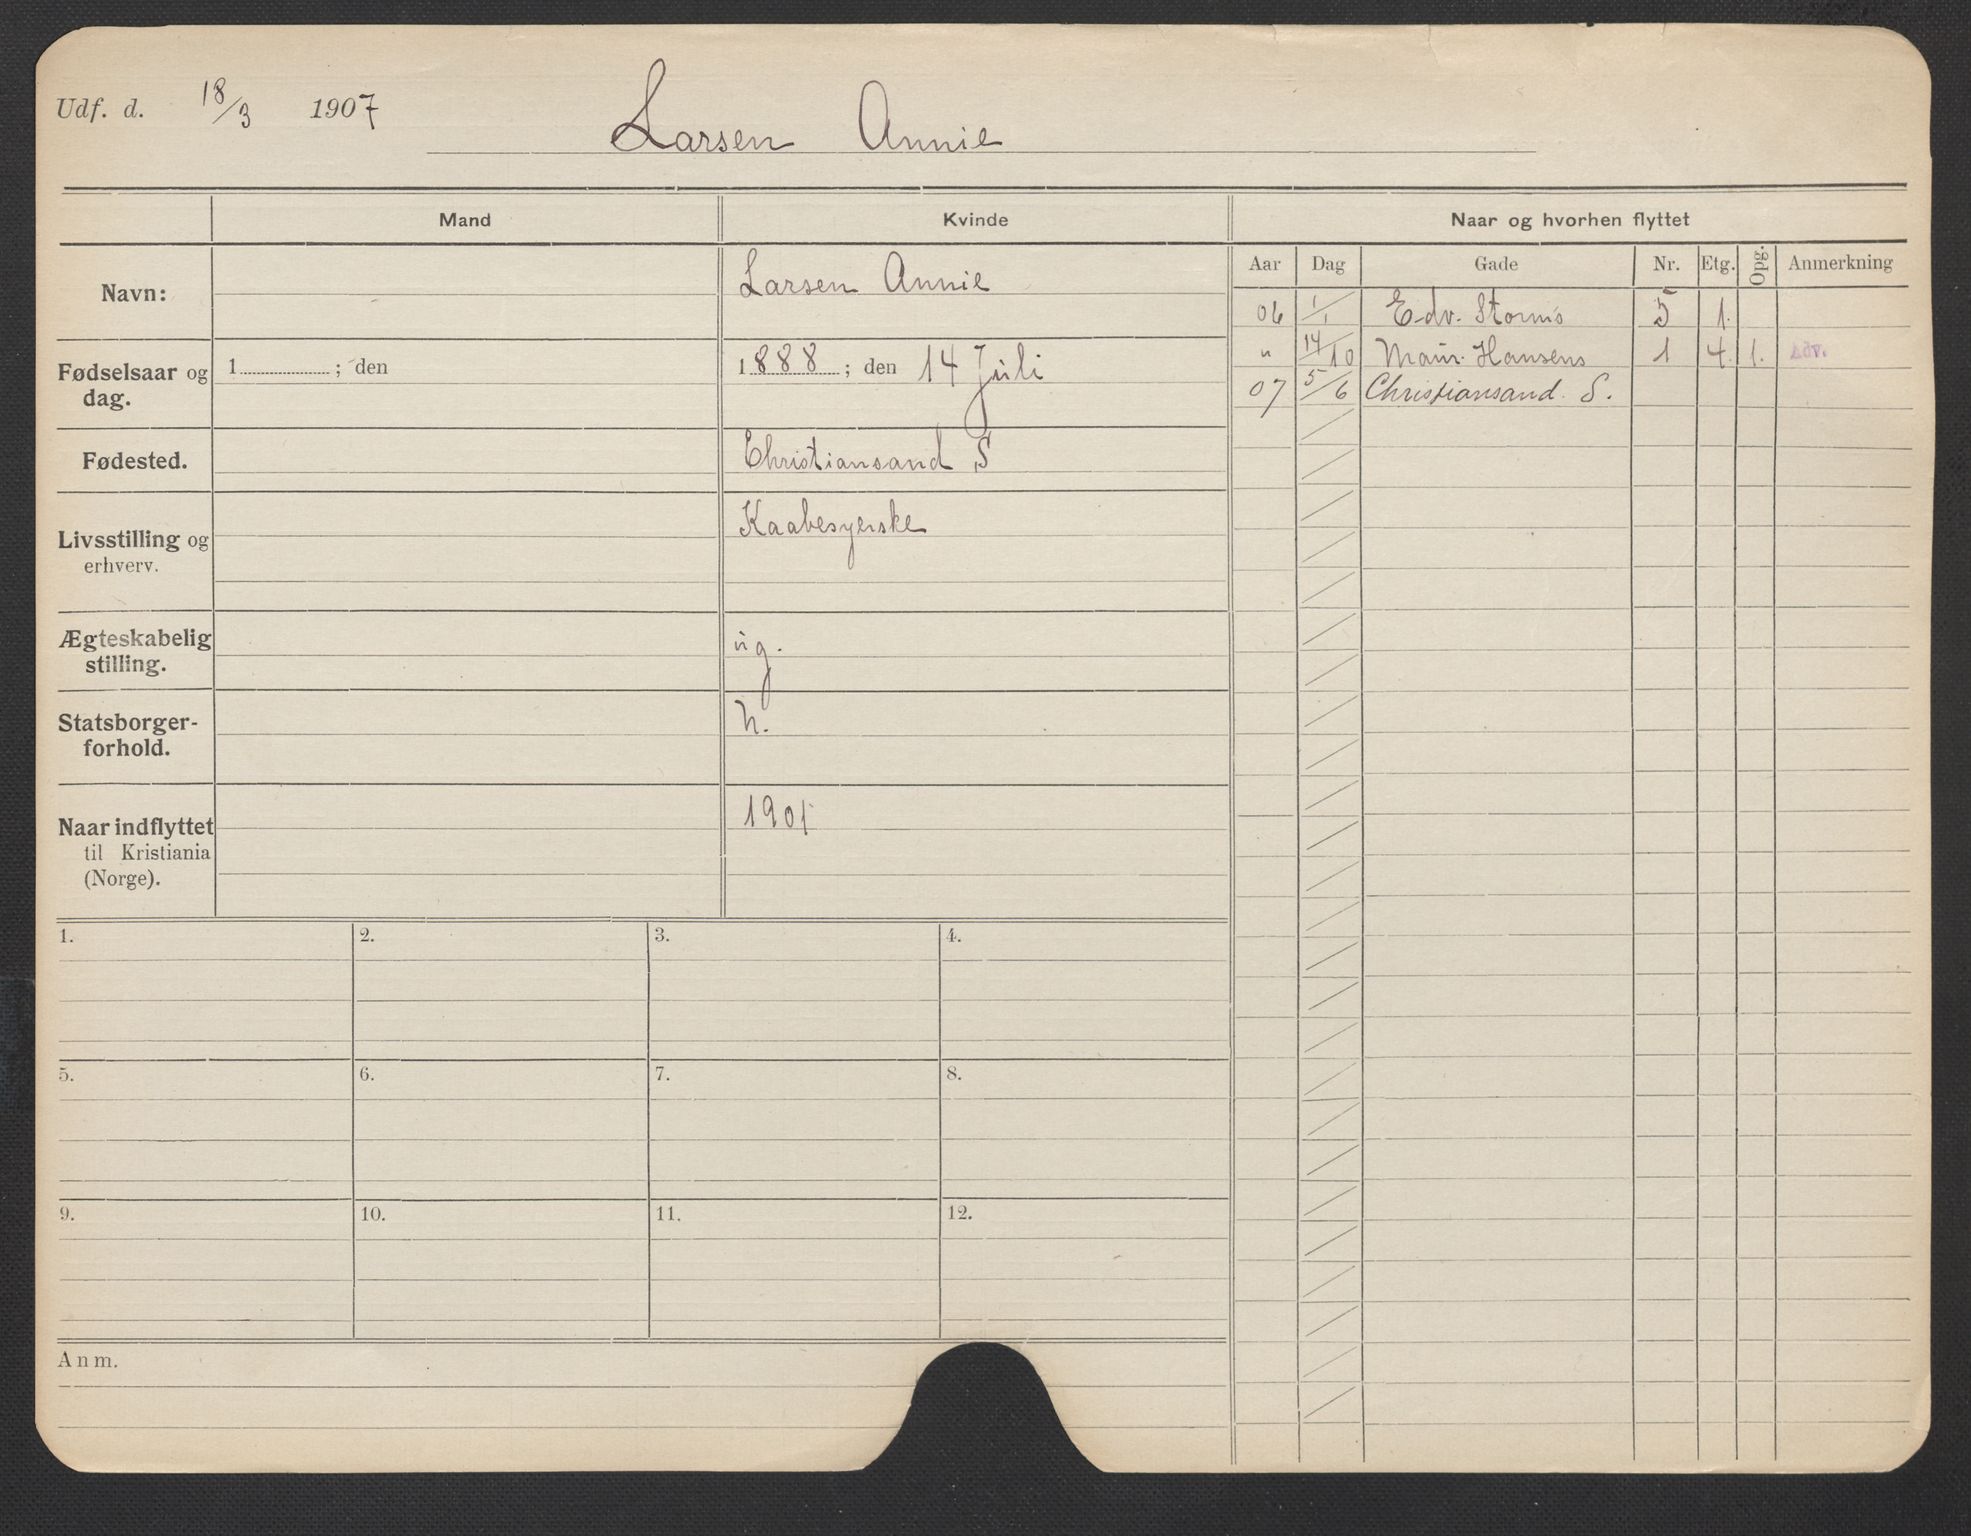 Udf. d. 18/3 1907 Larsen Annie
Mand Kvinde Naar og hvorhen flyttet
Aar Dag Gade Nr. Etg. Opg. Anmerkning
Navn: Larsen Annie
06 1/1 Edv. Storms 5 1.
" 14/10 Maur. Hansens 1 4. 1. Adv.
07 5/6 Christiansand. S.
Fødselsaar og 1 ; den 1888 ; den 14 Juli
dag.
Fødested. Christiansand S
Livsstilling og Kaabesyerske
erhverv.
Ægteskabelig ug.
stilling.
Statsborger- n.
forhold.
Naar indflyttet 1901
til Kristiania
(Norge).
1. 2. 3. 4.
5. 6. 7. 8.
9. 10. 11. 12.
Anm.